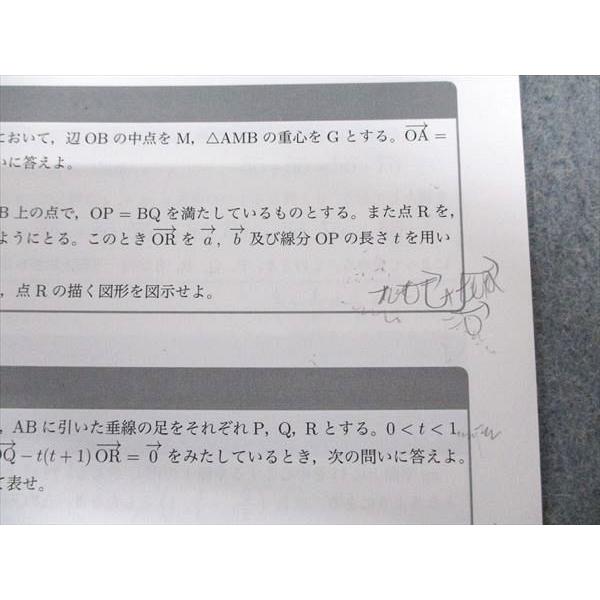 において，辺 OB の中点を M，△AMB の重心を G とする。$\overrightarrow{OA}$ =
いに答えよ。
B 上の点で，OP = BQ を満たしているものとする。また点 R を，
ようにとる。このとき $\overrightarrow{OR}$ を $\vec{a}$，$\vec{b}$ 及び線分 OP の長さ t を用い
，点 R の描く図形を図示せよ。
，AB に引いた垂線の足をそれぞれ P，Q，R とする。0 < t < 1，
$\overrightarrow{OQ}$ − t(t+1)$\overrightarrow{OR}$ = $\vec{0}$ をみたしているとき，次の問いに答えよ。
て表せ。